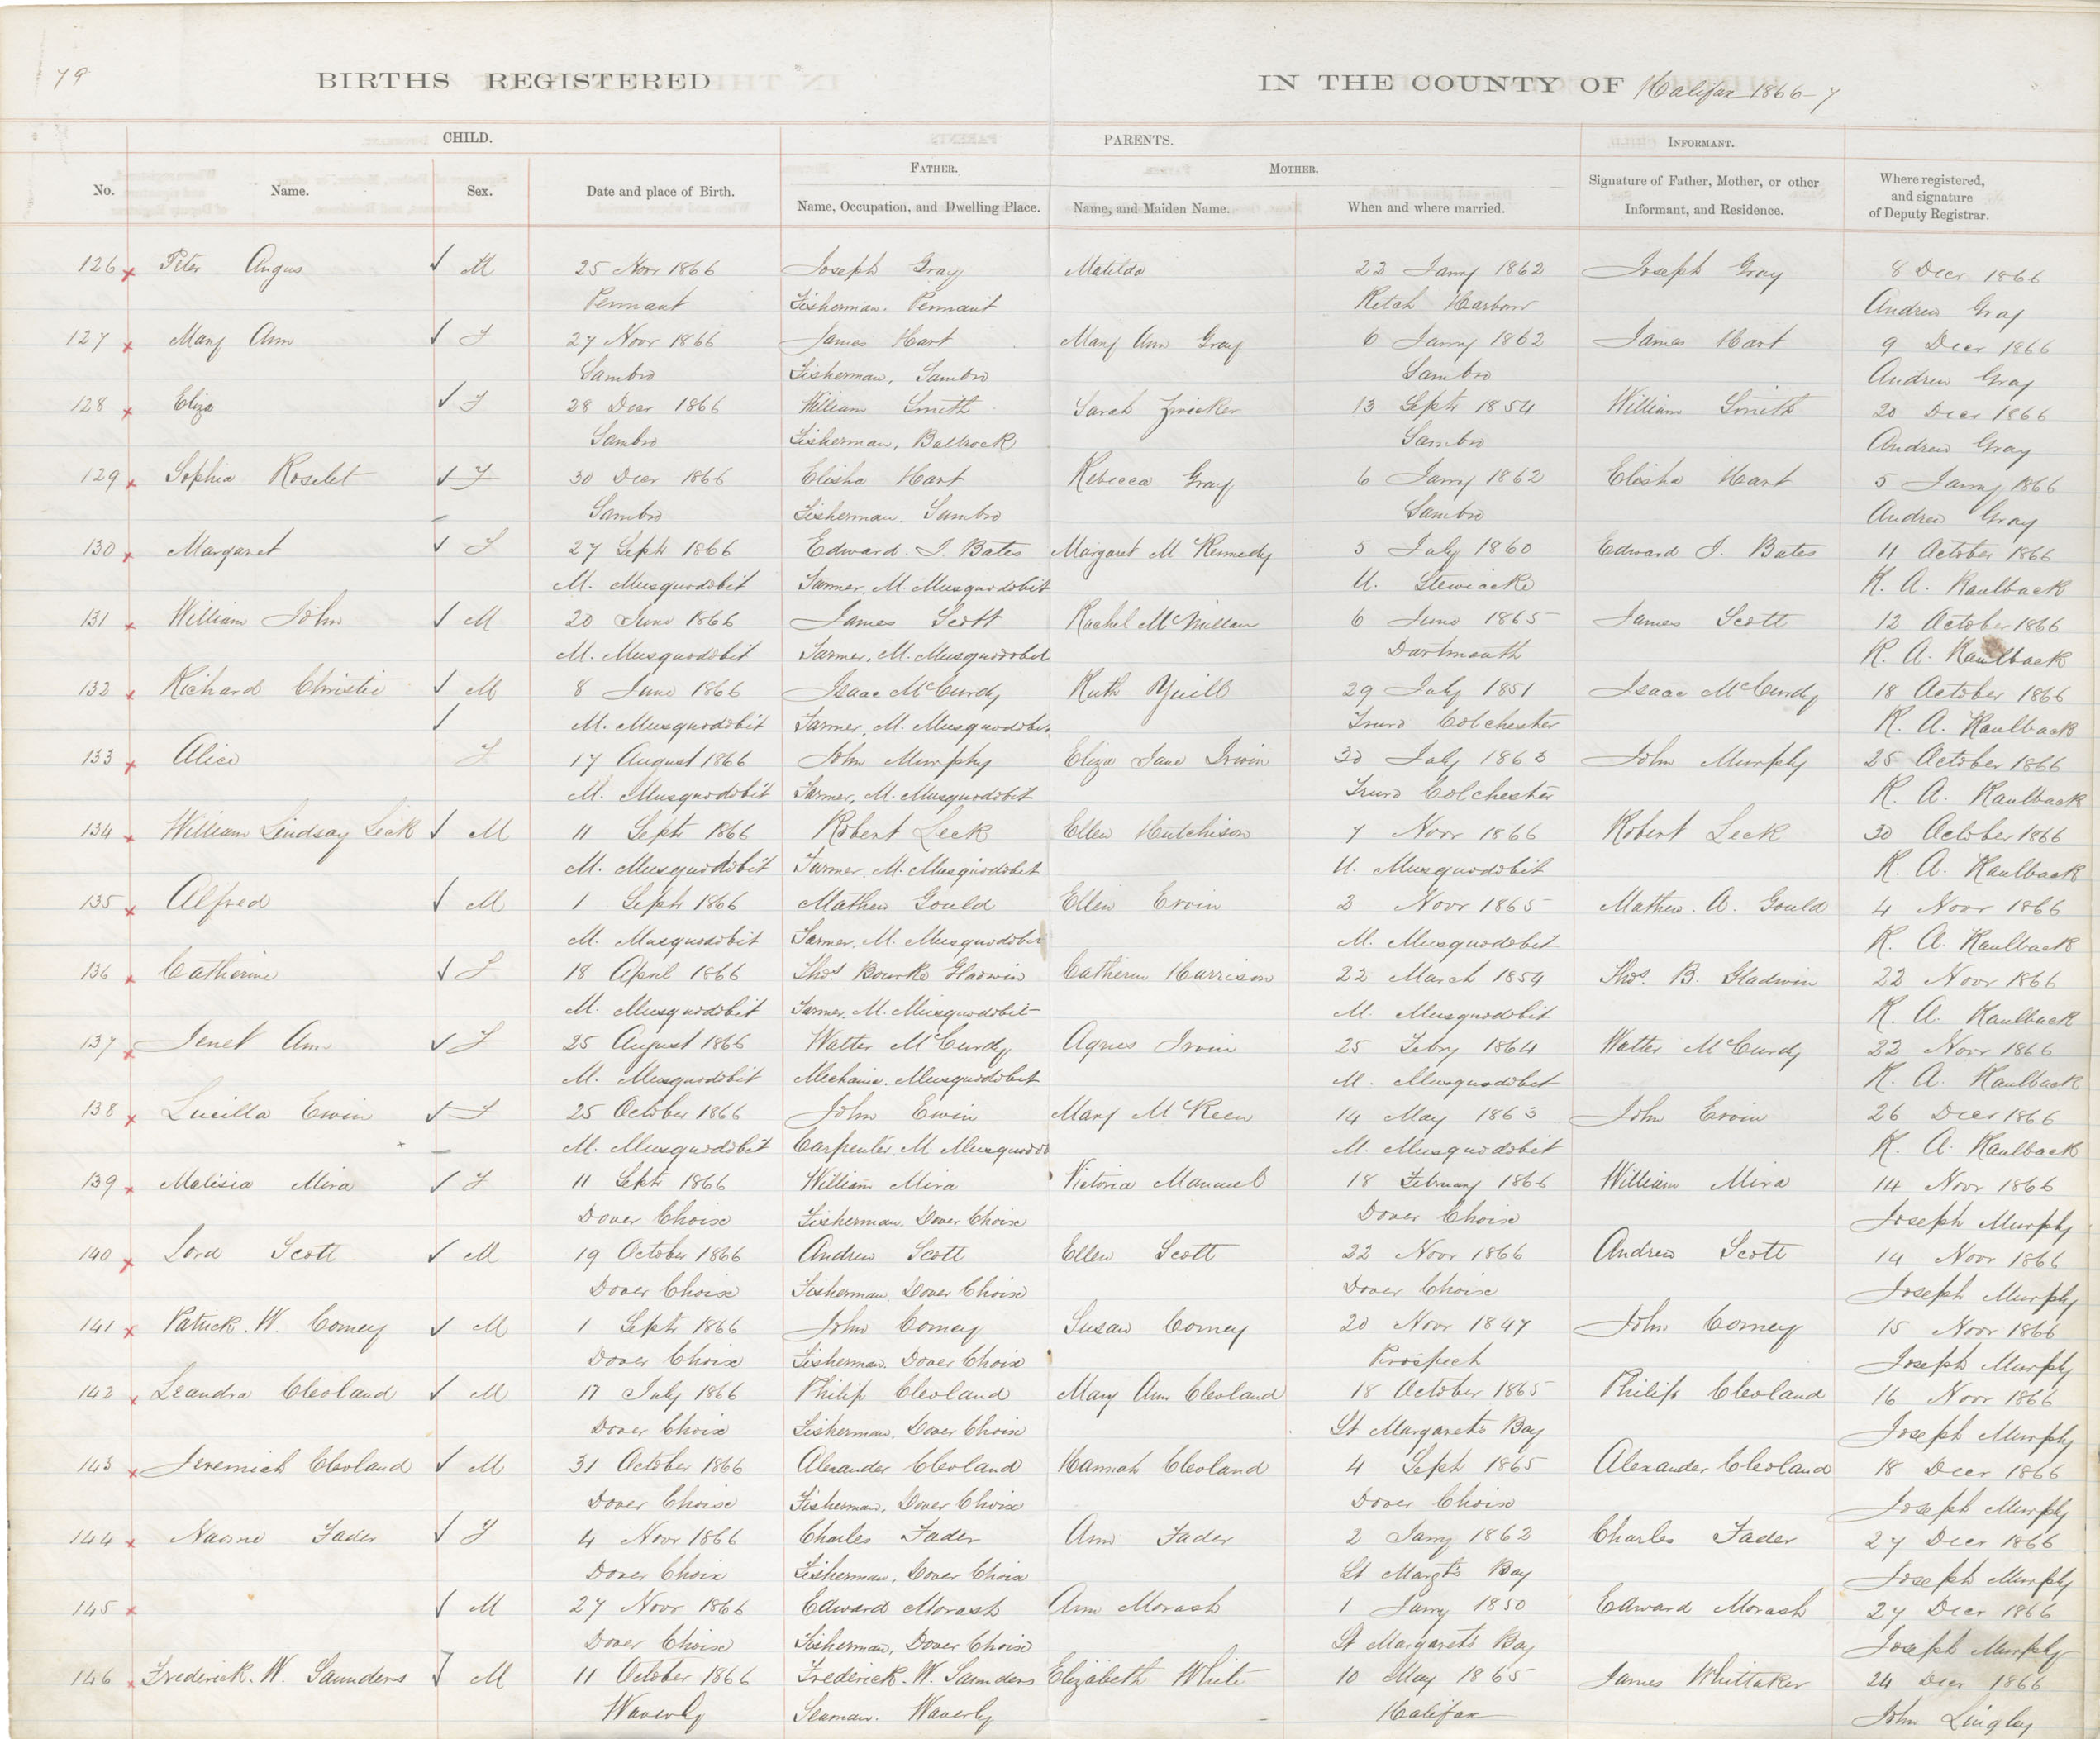 79
BIRTHS REGISTERED IN THE COUNTY OF Halifax 1866-7
CHILD. PARENTS. INFORMANT.
FATHER. MOTHER.
No. Name. Sex. Date and place of Birth. Name, Occupation, and Dwelling Place. Name, and Maiden Name. When and where married. Signature of Father, Mother, or other Informant, and Residence. Where registered, and signature of Deputy Registrar.
126 Peter Angus M 25 Novr 1866 Joseph Gray Matilda 22 Janry 1862 Joseph Gray 8 Decr 1866
Pennant Fisherman. Pennant Ketch Harbour Andrew Gray
127 Mary Ann F 27 Novr 1866 James Hart Mary Ann Gray 6 Janry 1862 James Hart 9 Decr 1866
Sambro Fisherman, Sambro Sambro Andrew Gray
128 Eliza F 28 Decr 1866 William Smith Sarah Zwicker 13 Septr 1854 William Smith 20 Decr 1866
Sambro Fisherman, Ballrock Sambro Andrew Gray
129 Sophia Roselet F 30 Decr 1866 Elisha Hart Rebecca Gray 6 Janry 1862 Elisha Hart 5 Janry 1866
Sambro Fisherman. Sambro Sambro Andrew Gray
130 Margaret F 27 Septr 1866 Edward J. Bates Margaret McKennedy 5 July 1860 Edward J. Bates 11 October 1866
M. Musquodobit Farmer, M. Musquodobit U. Stewiacke R. A. Kaulback
131 William John M 20 June 1866 James Scott Rachel McMillan 6 June 1865 James Scott 12 October 1866
M. Musquodobit Farmer, M. Musquodobit Dartmouth R. A. Kaulback
132 Richard Christie M 8 June 1866 Isaac McCurdy Ruth Yuill 29 July 1851 Isaac McCurdy 18 October 1866
M. Musquodobit Farmer, M. Musquodobit Truro Colchester R. A. Kaulback
133 Alice F 17 August 1866 John Murphy Eliza Jane Irwin 30 July 1863 John Murphy 25 October 1866
M. Musquodobit Farmer, M. Musquodobit Truro Colchester R. A. Kaulback
134 William Lindsay Leck M 11 Septr 1866 Robert Leck Ellen Hutchison 7 Novr 1866 Robert Leck 30 October 1866
M. Musquodobit Farmer, M. Musquodobit U. Musquodobit R. A. Kaulback
135 Alfred M 1 Septr 1866 Mathew Gould Ellen Ervin 2 Novr 1865 Mathew. A. Gould 4 Novr 1866
M. Musquodobit Farmer, M. Musquodobit M. Musquodobit R. A. Kaulback
136 Catherine F 18 April 1866 Thos Bourke Gladwin Catherin Harrison 22 March 1854 Thos. B. Gladwin 22 Novr 1866
M. Musquodobit Farmer, M. Musquodobit M. Musquodobit R. A. Kaulback
137 Jenet Ann F 25 August 1866 Walter McCurdy Agnes Irvin 25 Febry 1864 Walter McCurdy 22 Novr 1866
M. Musquodobit Mechanic. Musquodobit M. Musquodobit R. A. Kaulback
138 Lucilla Erwin F 25 October 1866 John Erwin Mary McKeen 14 May 1863 John Ervin 26 Decr 1866
M. Musquodobit Carpenter, M Musquodob M. Musquodobit R. A. Kaulback
139 Malisia Mira F 11 Septr 1866 William Mira Victoria Manuel 18 February 1866 William Mira 14 Novr 1866
Dover Choix Fisherman, Dover Choix Dover Choix Joseph Murphy
140 Lora Scott M 19 October 1866 Andrew Scott Ellen Scott 22 Novr 1866 Andrew Scott 14 Novr 1866
Dover Choix Fisherman, Dover Choix Dover Choix Joseph Murphy
141 Patrick. W. Comey M 1 Septr 1866 John Comey Susan Comey 20 Novr 1847 John Comey 15 Novr 1866
Dover Choix Fisherman. Dover Choix Prospect Joseph Murphy
142 Leandra Cleoland M 17 July 1866 Philip Cleoland Mary Ann Cleoland 18 October 1865 Philip Cleoland 16 Novr 1866
Dover Choix Fisherman. Dover Choix St Margarets Bay Joseph Murphy
143 Jeremiah Cleoland M 31 October 1866 Alexander Cleoland Hannah Cleoland 4 Sept 1865 Alexander Cleoland 18 Decr 1866
Dover Choix Fisherman, Dover Choix Dover Choix Joseph Murphy
144 Naome Fader F 4 Novr 1866 Charles Fader Ann Fader 2 Janry 1862 Charles Fader 27 Decr 1866
Dover Choix Fisherman, Dover Choix St Margts Bay Joseph Murphy
145 M 27 Novr 1866 Edward Morash Ann Morash 1 Janry 1850 Edward Morash 27 Decr 1866
Dover Choix Fisherman, Dover Choix St Margarets Bay Joseph Murphy
146 Frederick. W. Saunders M 11 October 1866 Frederick. W. Saunders Elizabeth White 10 May 1865 James Whittaker 24 Decr 1866
Waverly Seaman. Waverly Halifax John Lingley